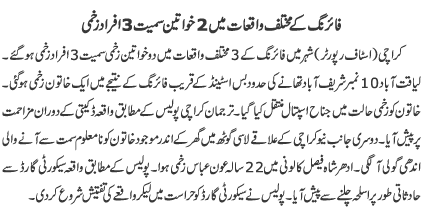 فائرنگ کے مختلف واقعات میں 2 خواتین سمیت 3 افراد زخمی
کراچی (اسٹاف رپورٹر) شہر میں فائرنگ کے 3 مختلف واقعات میں دو خواتین زخمی سمیت 3 افراد زخمی ہو گئے۔
لیاقت آباد 10 نمبر شریف آباد تھانے کی حدود بس اسٹینڈ کے قریب فائرنگ کے نتیجے میں ایک خاتون زخمی ہوگئی۔
خاتون کو زخمی حالت میں جناح اسپتال منتقل کیا گیا۔ ترجمان کراچی پولیس کے مطابق واقعہ ڈکیتی کے دوران مزاحمت
پر پیش آیا۔ دوسری جانب نیو کراچی کے علاقے لاسی گوٹھ میں گھر کے اندر موجود خاتون کو نامعلوم سمت سے آنے والی
اندھی گولی آ لگی۔ ادھر شاہ فیصل کالونی میں 22 سالہ عون عباس زخمی ہوا۔ پولیس کے مطابق واقعہ سیکورٹی گارڈ سے
حادثاتی طور پر اسلحہ چلنے سے پیش آیا۔ پولیس نے سیکورٹی گارڈ کو حراست میں لیکر واقعے کی تفتیش شروع کر دی۔